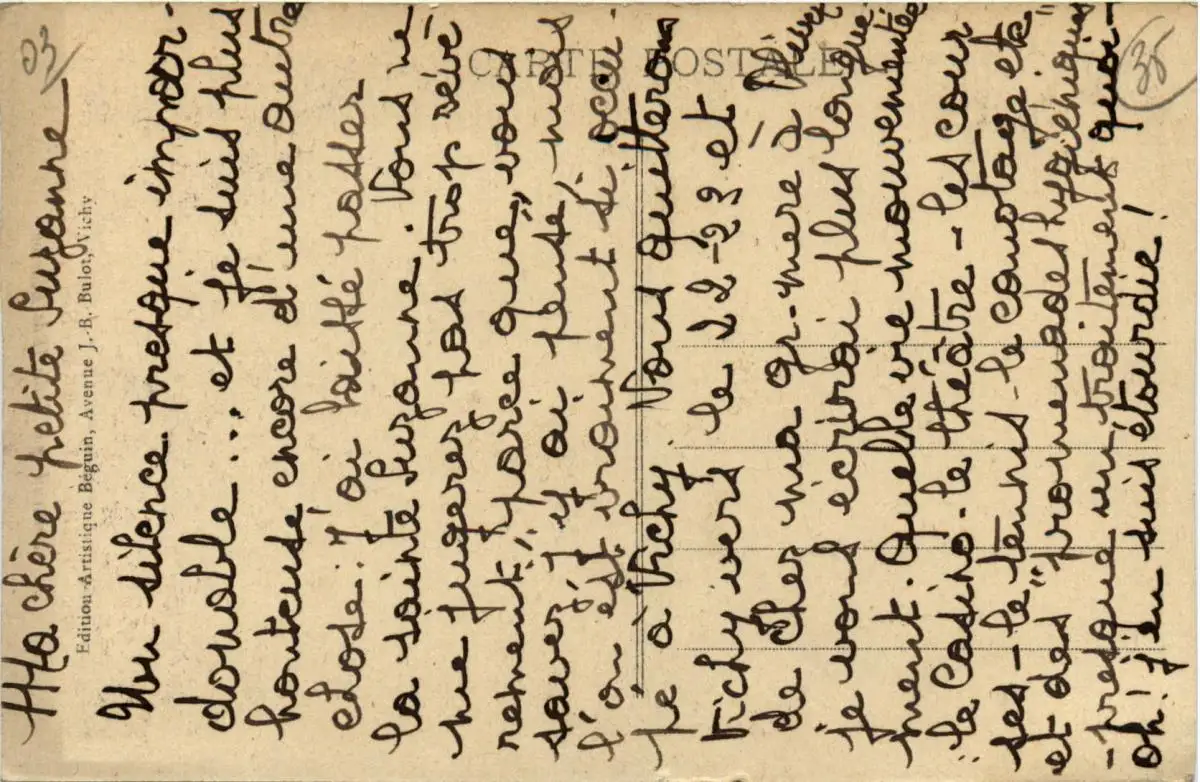 Ma chère petite Suzanne
Edition Artistique Béguin, Avenue J.-B. Bulot, Vichy
Un silence presque impar-
donnable... et je suis plus
honteuse encore d'une autre
chose: j'ai laissé passer
la sainte Suzanne. Vous ne
me jugerez pas trop sévè
rement, parce que, vous
savez j'y ai pensé, mais
l'on est vraiment si occu-
pé à Vichy. Nous quitterons
Vichy vers le 22-23 et
de chez ma gr-mère à
je vous écrirai plus longue-
ment. Quelle vie mouvementée
le Casino - le théâtre - les cour
ses - le tennis - le canotage etc
et des "promenades hygiéniques"
- presque un traitement quoi -
oh! j'en suis étourdie!
CARTE POSTALE
33
35